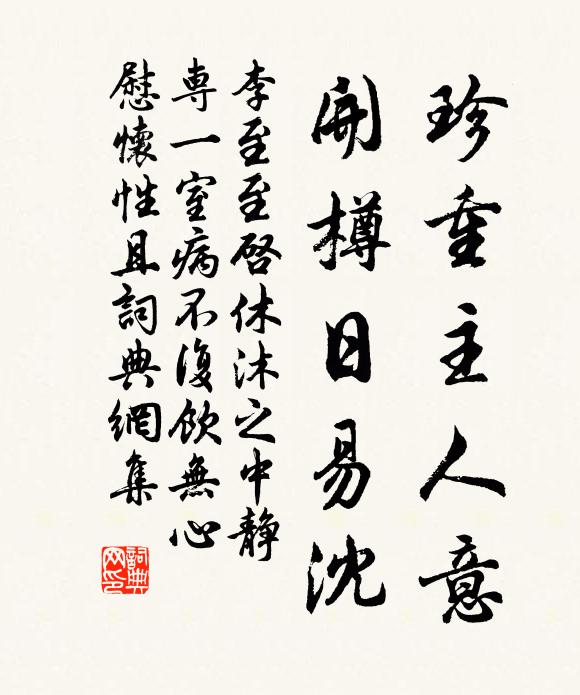 珍重主人意
開樽日易沈
李至至啓休沐之中静
専一室病不復飲無心
慰懷性且詞典網集
詞典網印